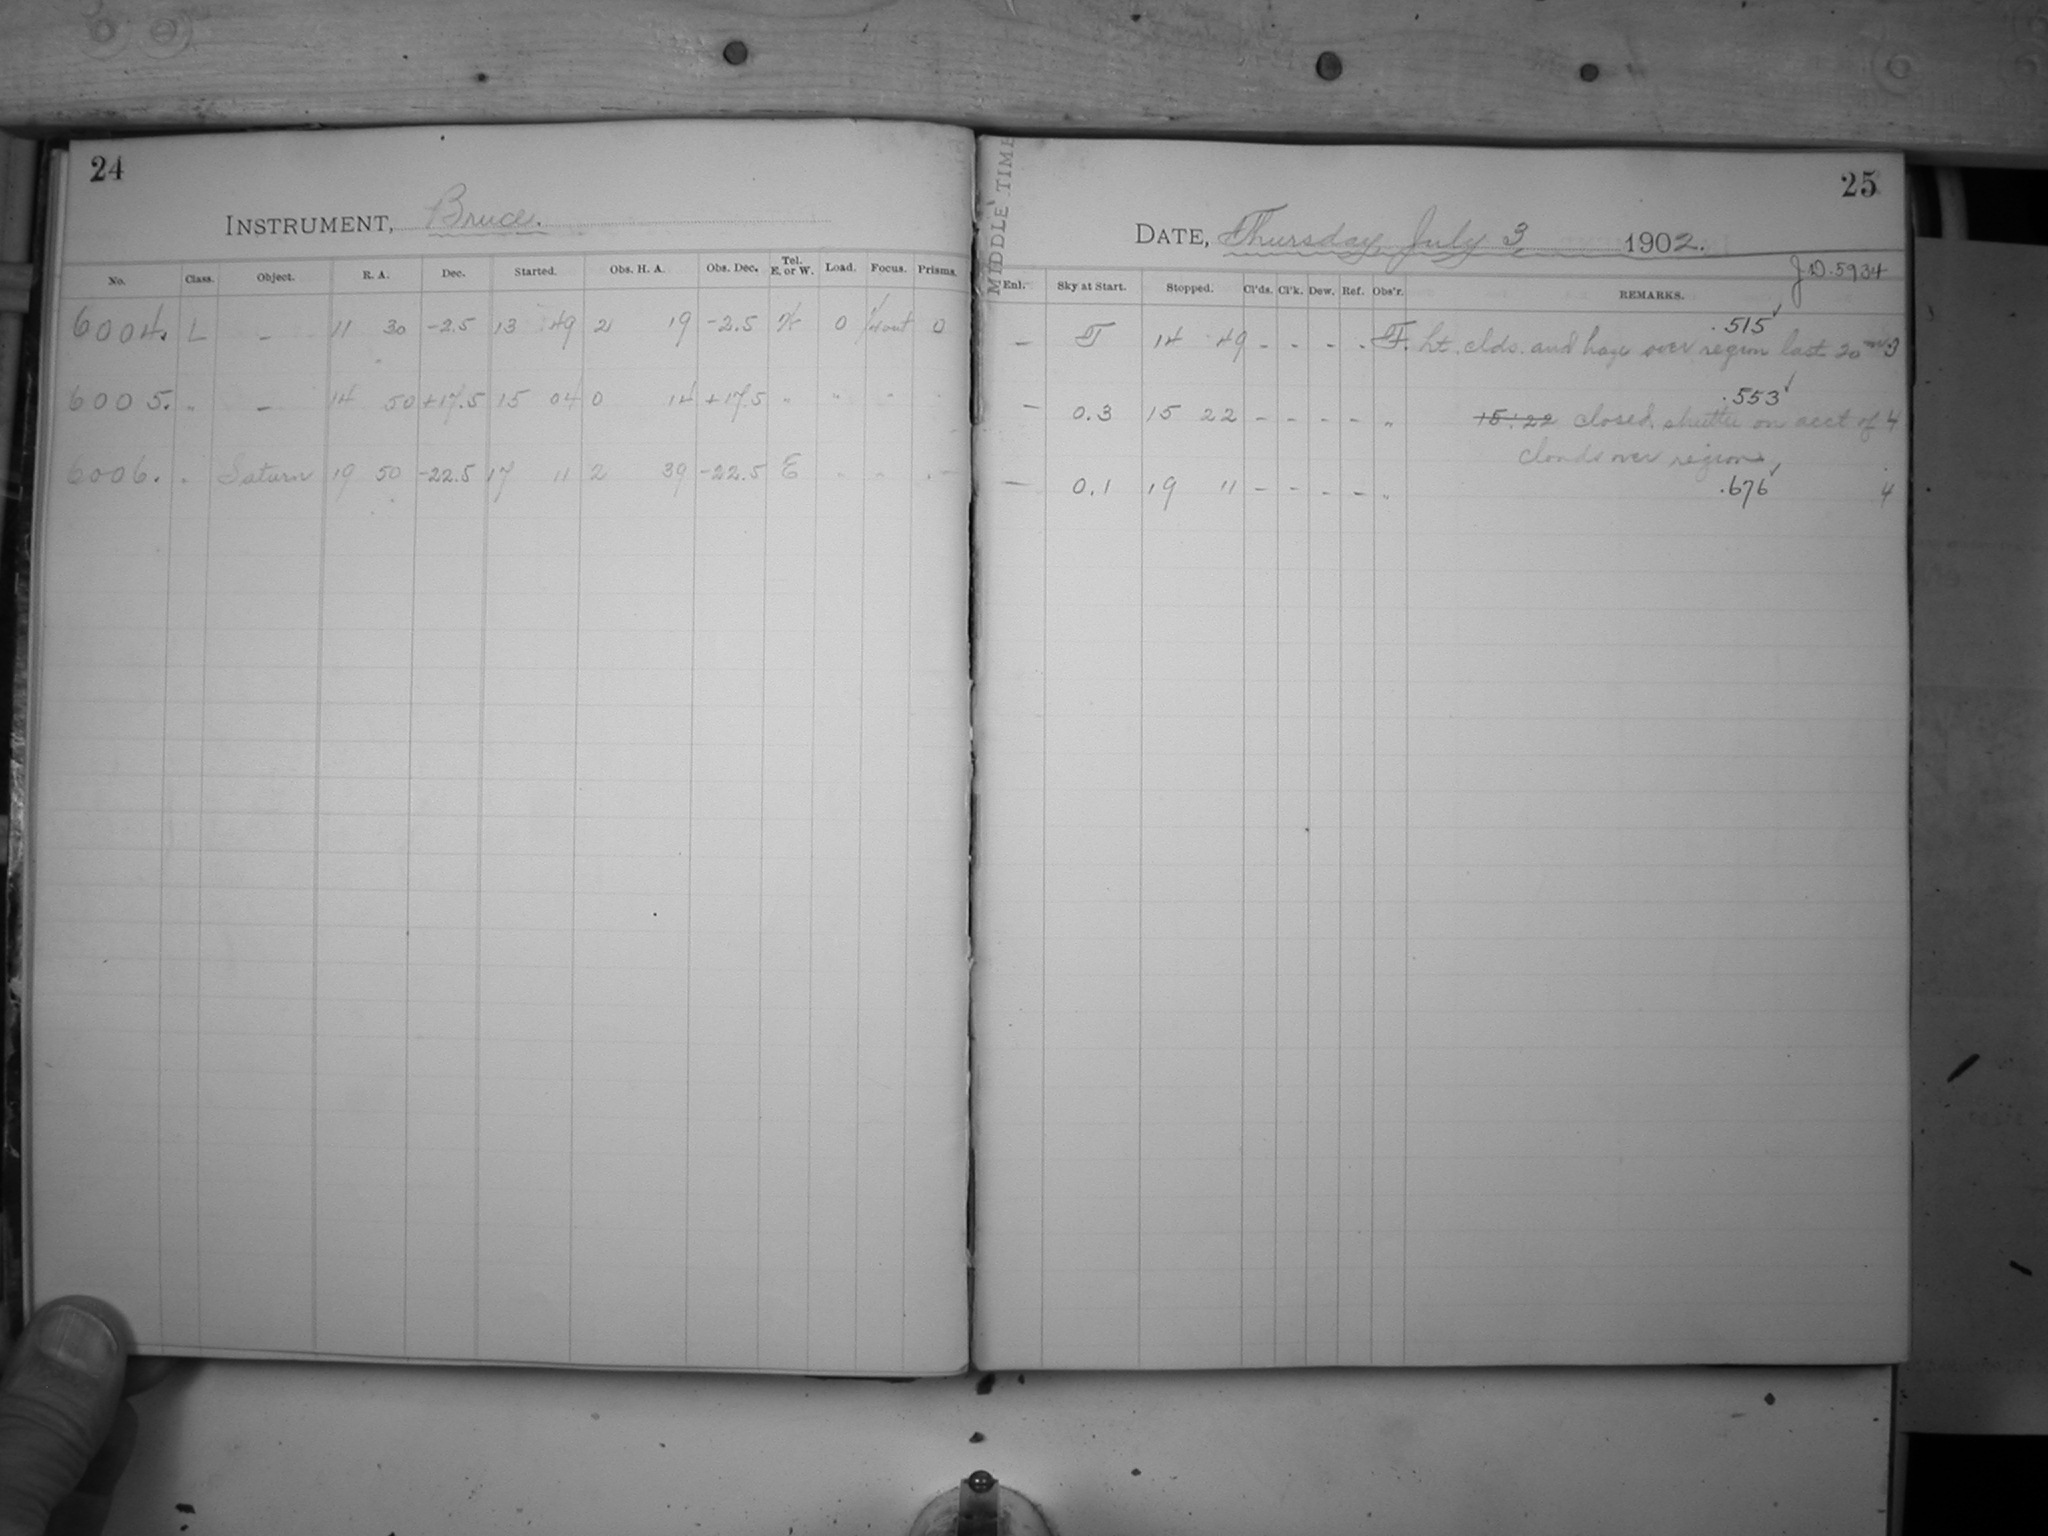 24
INSTRUMENT, Bruce.
No. Class. Object. R. A. Dec. Started. Obs. H. A. Obs. Dec. Tel. E. or W. Load. Focus. Prisms.
6004. L – 11 30 -2.5 13 49 2 19 -2.5 W 0 1/4 out 0
6005. " – 14 50 +17.5 15 04 0 14 +17.5 " " " "
6006. " Saturn 19 50 -22.5 17 11 2 39 -22.5 E " " "
MIDDLE TIME
25
DATE, Thursday, July 3, 1902.
J.D. 5934
Enl. Sky at Start. Stopped. Cl'ds. Cl'k. Dew. Ref. Obs'r. REMARKS.
.515 ✓
– F 14 49 - - - - F. lt. clds. and haze over region last 20 m 3
.553 ✓
– 0.3 15 22 - - - - " 15:22 closed shutter on acct of 4
clouds over region,
– 0.1 19 11 - - - - " .676 ✓ 4